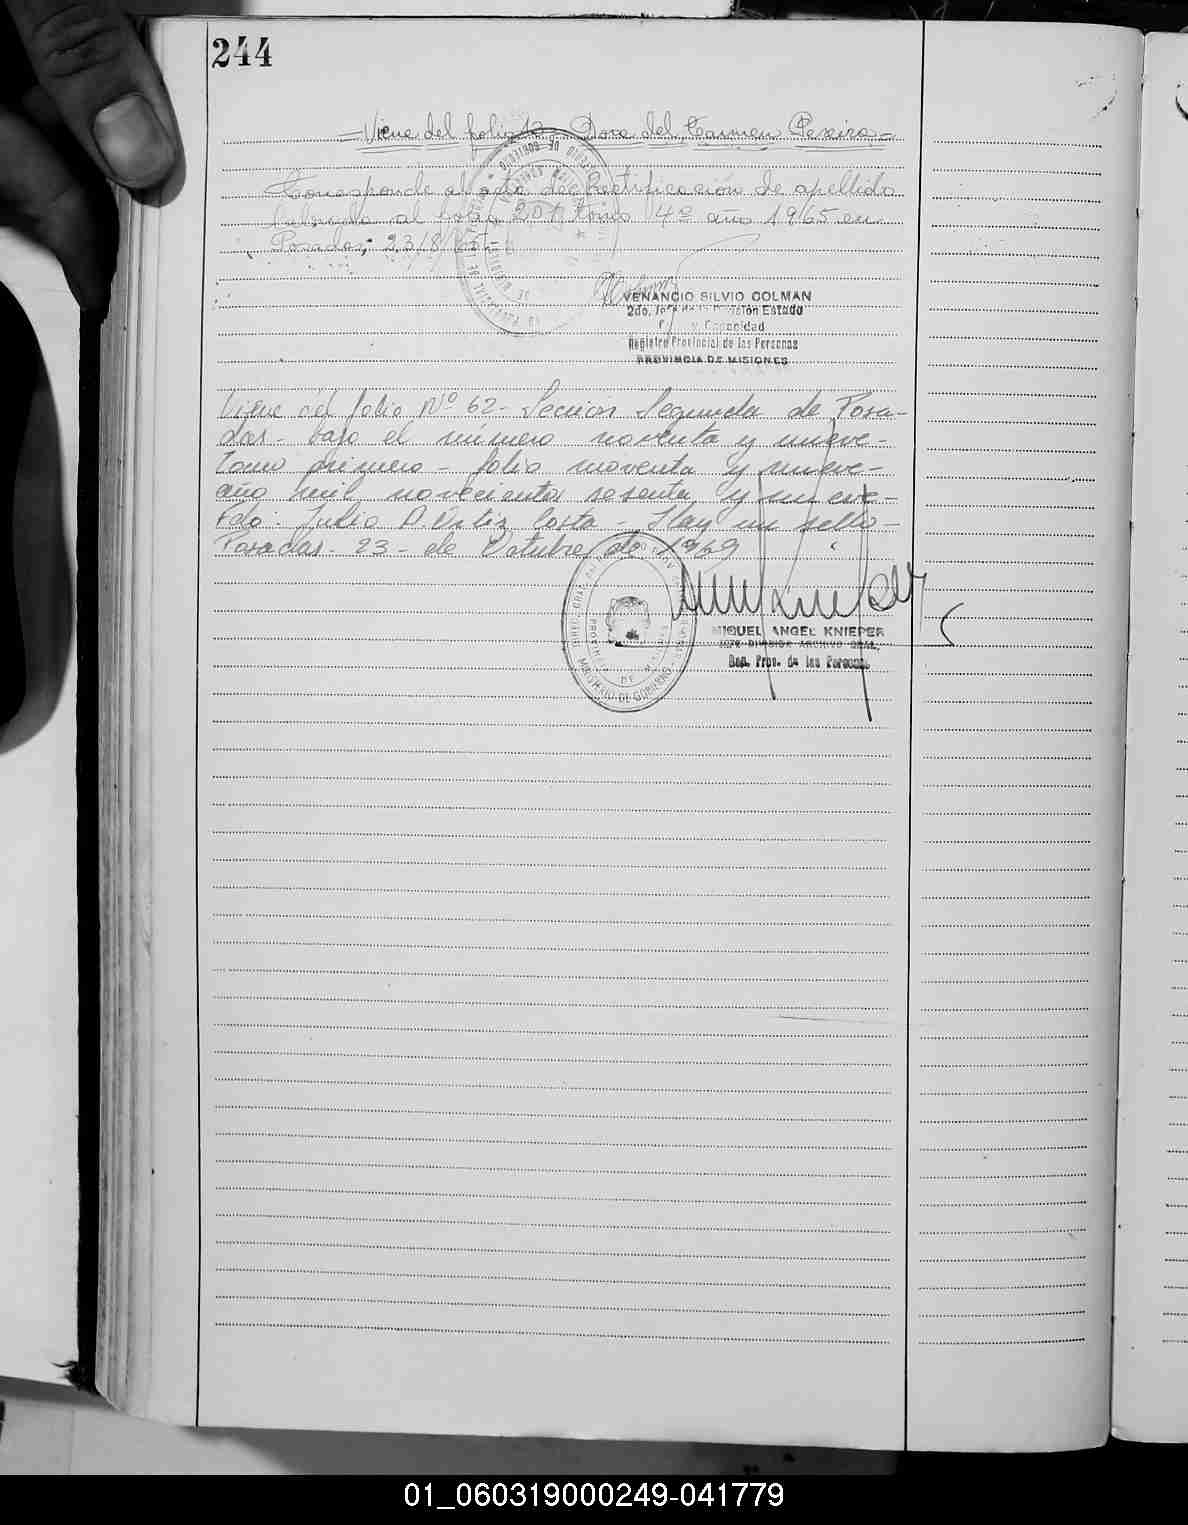 244
—Viene del folio 12 - Dora del Carmen Pereira—
Corresponde al acta de Rectificación de apellido
labrada al folio 207 tomo 4º año 1965 en
Posadas; 23/8/65-
VENANCIO SILVIO COLMAN
2do. Jefe de la División Estado
y Capacidad
Registro Provincial de las Personas
PROVINCIA DE MISIONES
Viene del folio Nº 62 - Sección Segunda de Posa-
das - bajo el número noventa y nueve-
tomo primero - folio noventa y nueve-
año mil novecientos sesenta y nueve-
Fdo: Julio A. Ortiz Costa - Hay un sello-
Posadas - 23 - de Octubre de 1969
MIGUEL ANGEL KNIEPER
JEFE DIVISION ARCHIVO GRAL.
Reg. Prov. de las Personas
PROVINCIA DE MISIONES
MINISTERIO DE GOBIERNO
01_060319000249-041779